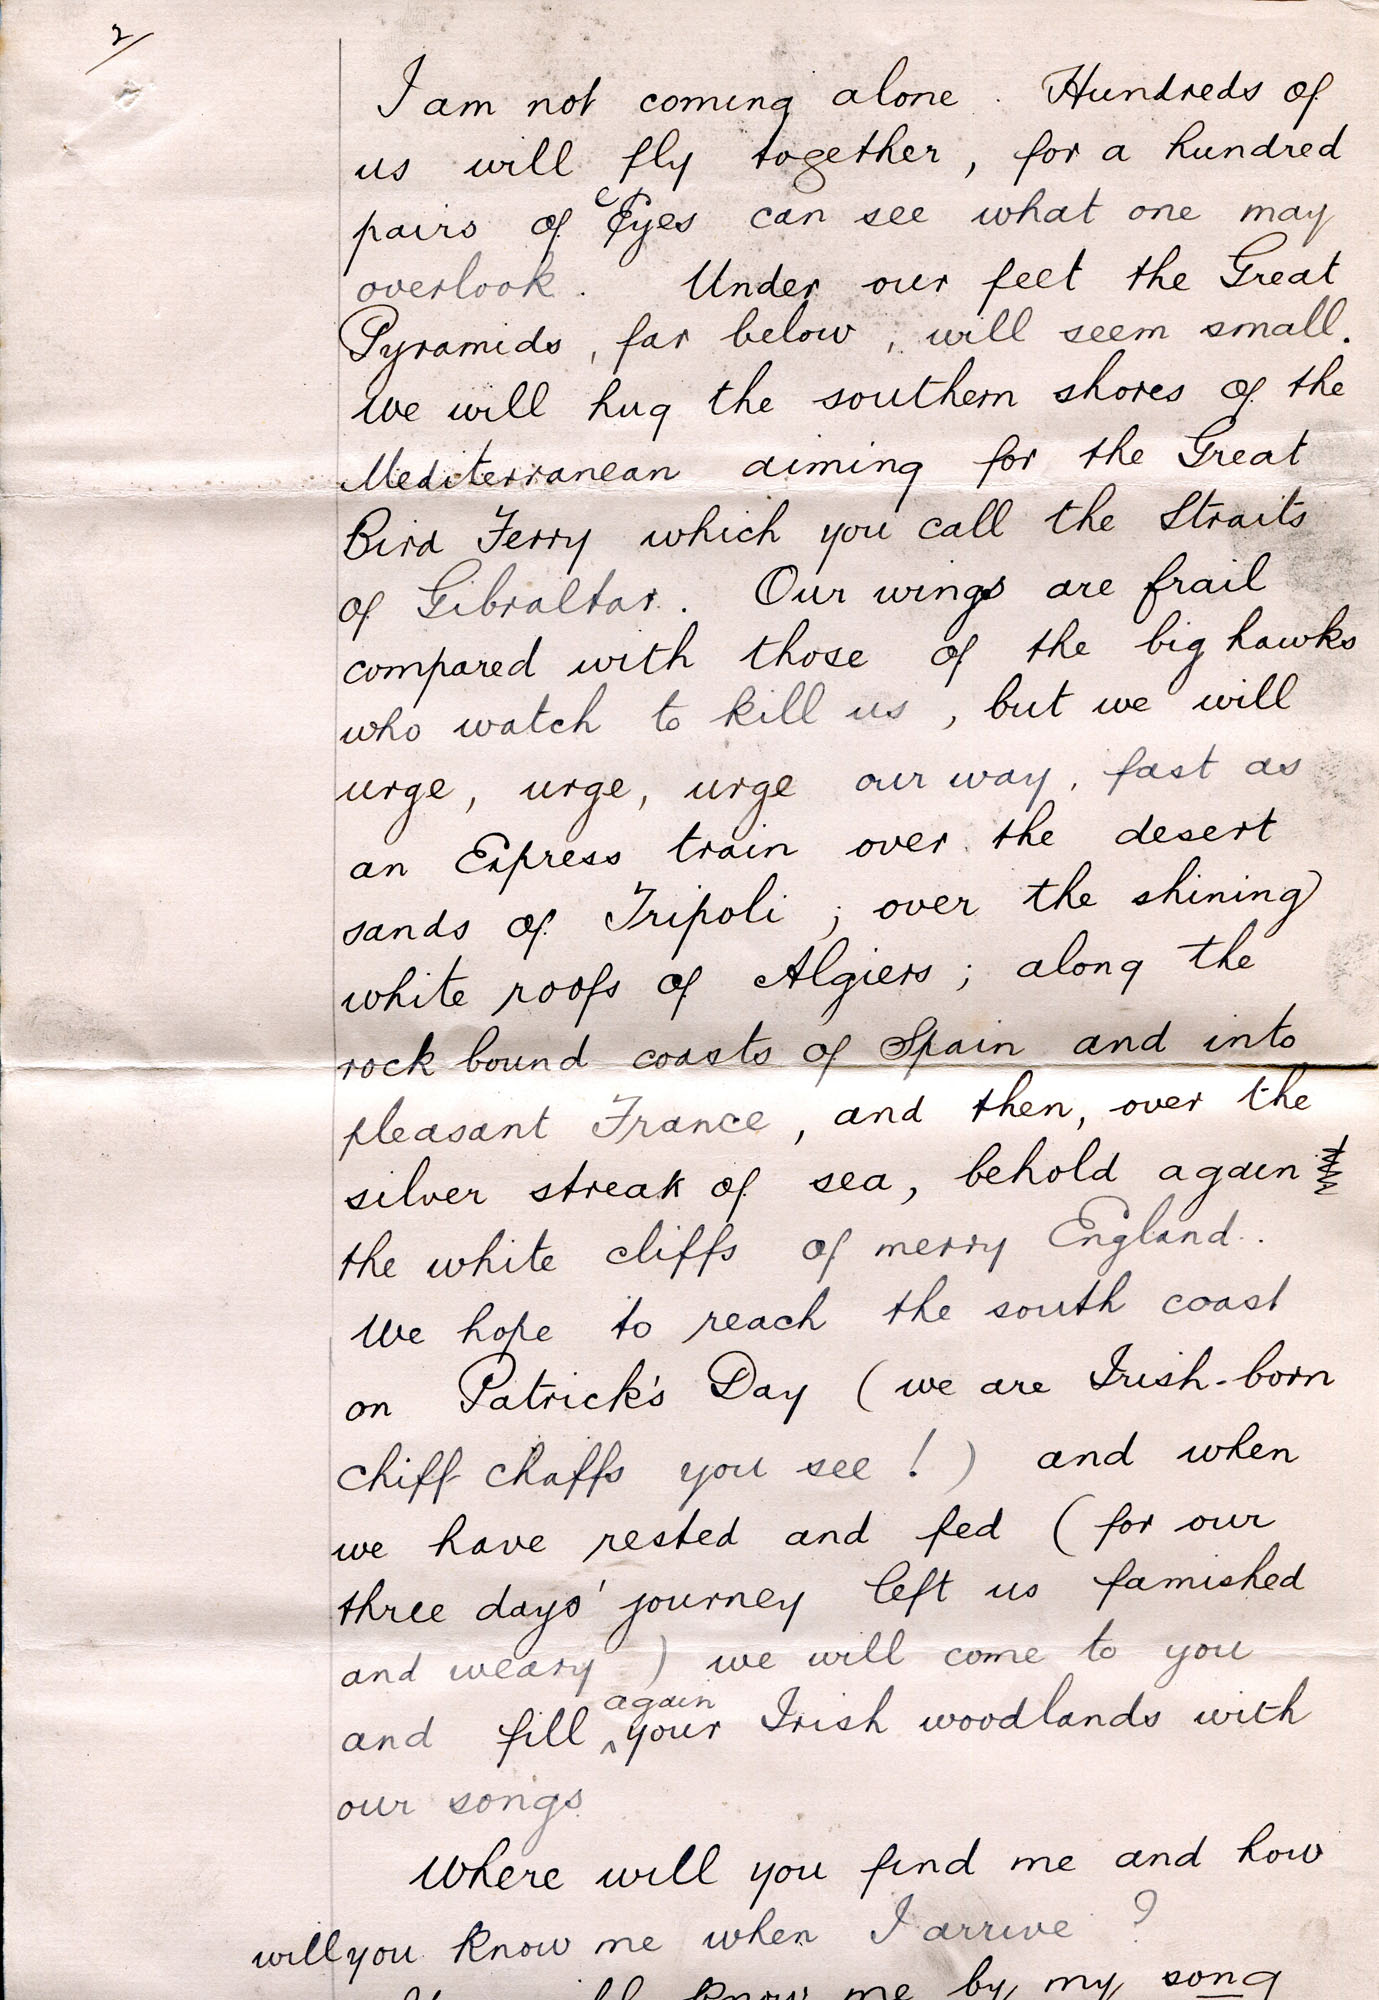 2/
I am not coming alone. Hundreds of
us will fly together, for a hundred
pairs of eyes can see what one may
overlook. Under our feet the Great
Pyramids, far below, will seem small.
We will hug the southern shores of the
Mediterranean aiming for the Great
Bird Ferry which you call the Straits
of Gibraltar. Our wings are frail
compared with those of the big hawks
who watch to kill us, but we will
urge, urge, urge our way, fast as
an Express train over the desert
sands of Tripoli; over the shining
white roofs of Algiers; along the
rock bound coasts of Spain and into
pleasant France, and then, over the
silver streak of sea, behold again
the white cliffs of merry England.
We hope to reach the south coast
on Patrick's Day (we are Irish-born
chiff chaffs you see!) and when
we have rested and fed (for our
three days' journey left us famished
and weary) we will come to you
and fill again your Irish woodlands with
our songs
Where will you find me and how
will you know me when I arrive?
know me by my song